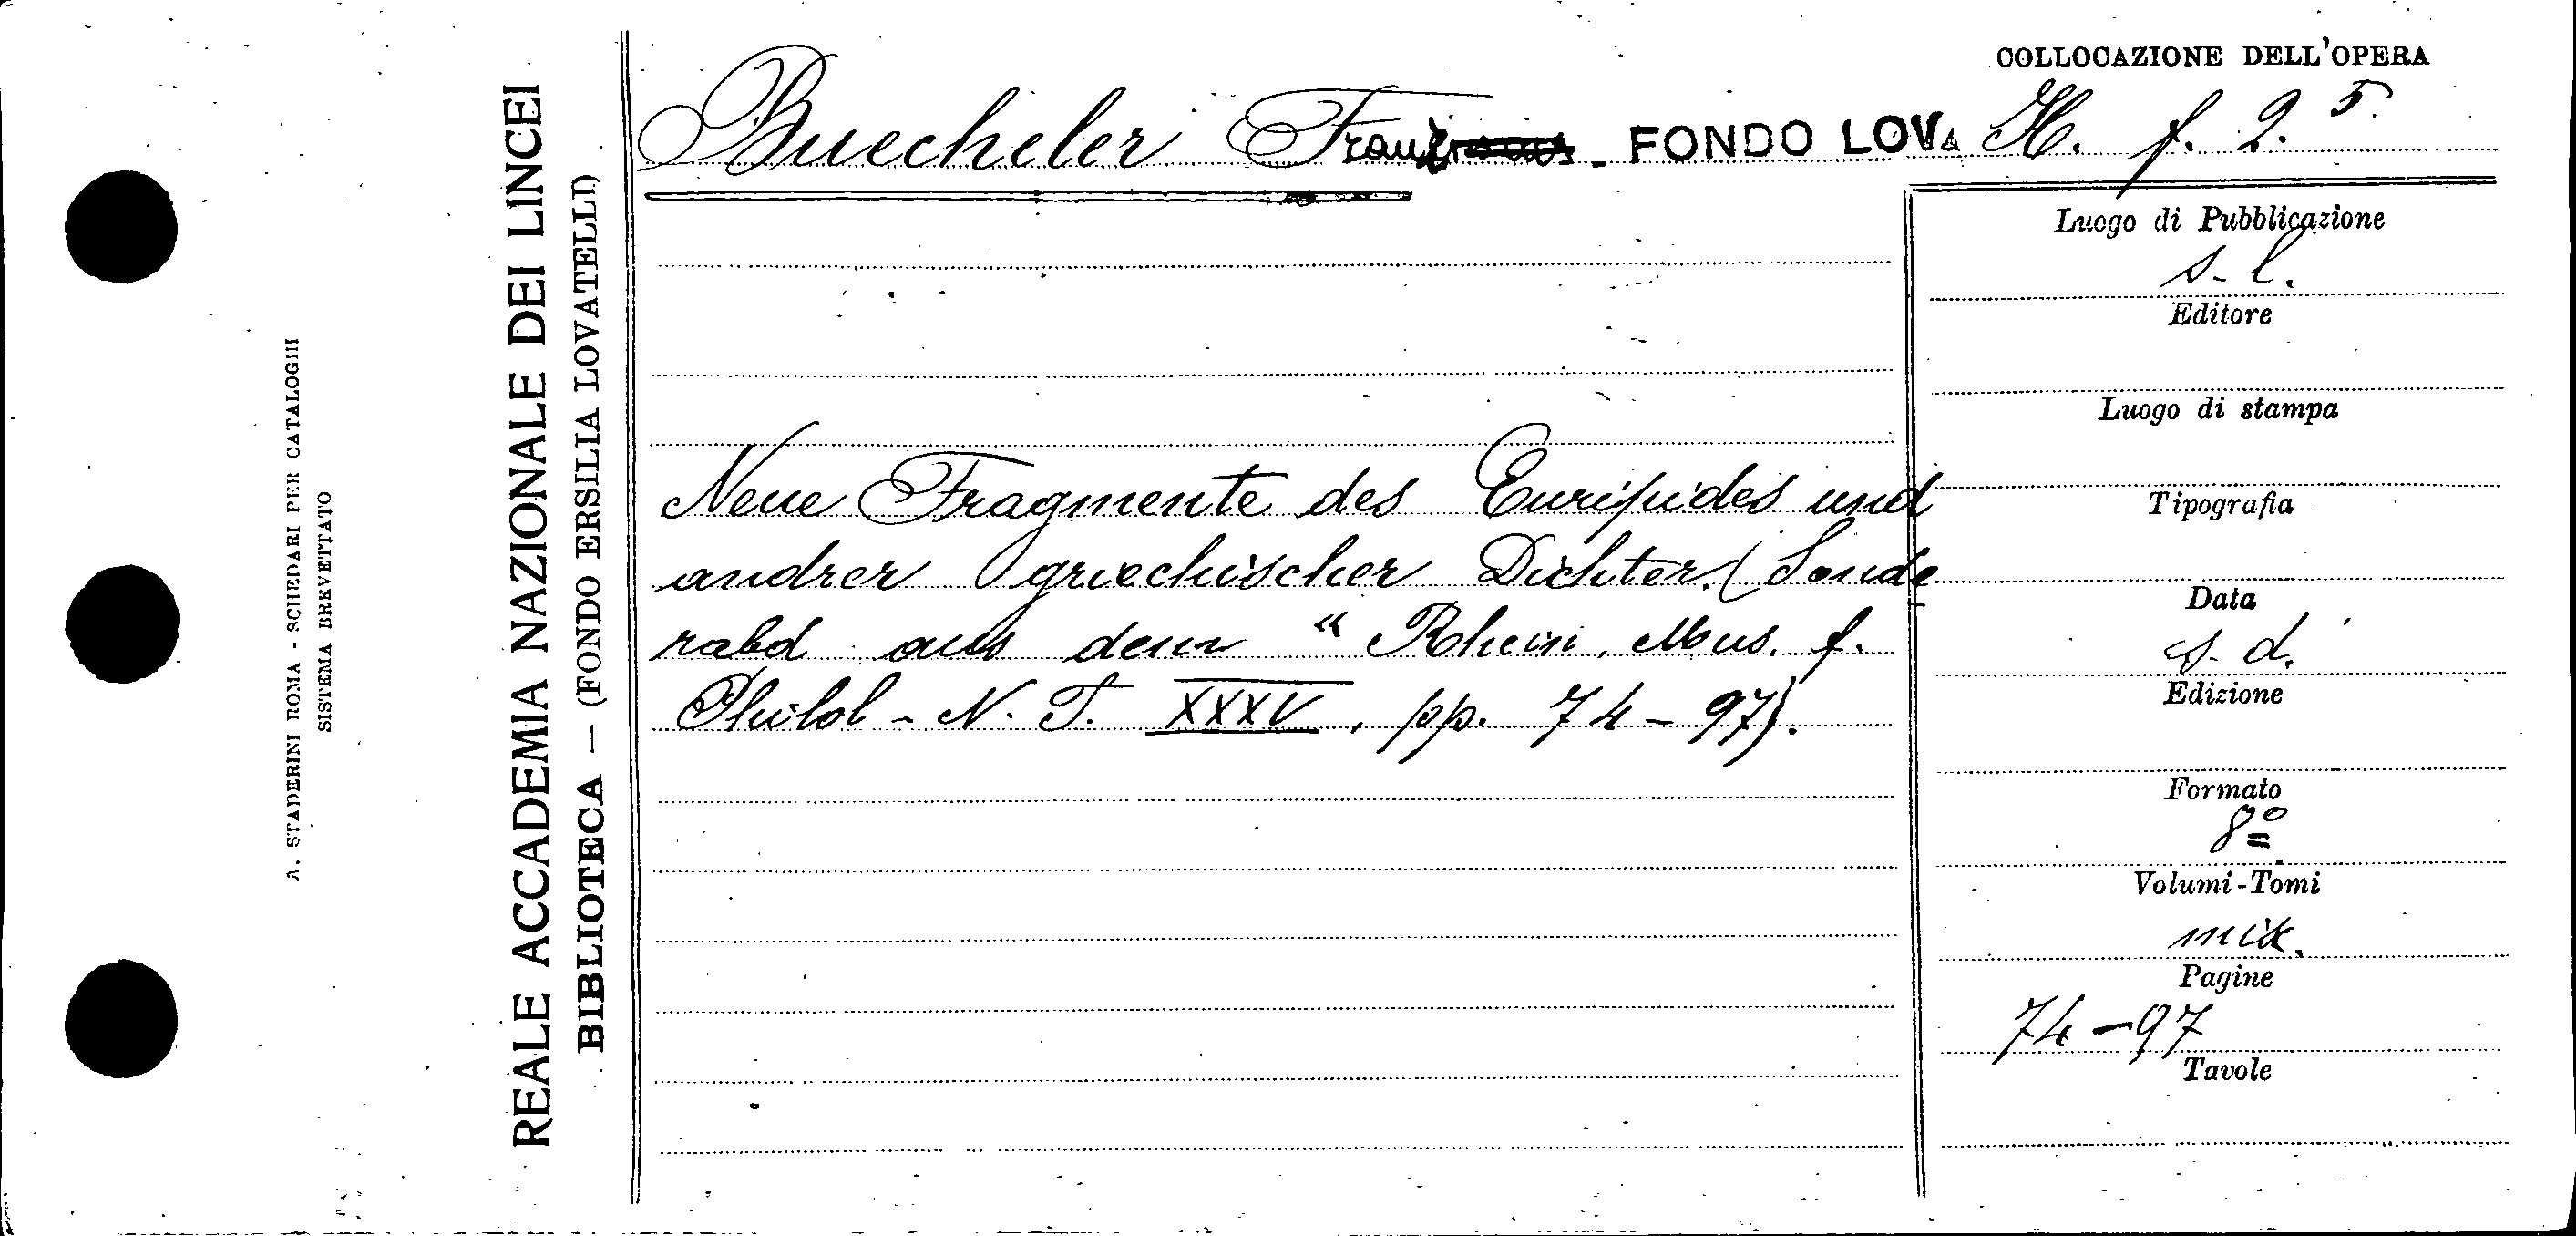 COLLOCAZIONE DELL'OPERA
Buecheler Franz - FONDO LOV. H. f. 2. 5.
REALE ACCADEMIA NAZIONALE DEI LINCEI
BIBLIOTECA — (FONDO ERSILIA LOVATELLI)
A. STADERINI ROMA - SCHEDARI PER CATALOGHI
SISTEMA BREVETTATO
Neue Fragmente des Euripides und
andrer griechischer Dichter. (Sonde
rabd aus dem " Rhein. Mus. f.
Philol - N. F. XXXV, pp. 74-97).
Luogo di Pubblicazione
s. l.
Editore
Luogo di stampa
Tipografia
Data
s. d.
Edizione
Formato
8º
Volumi-Tomi
Pagine
74-97
Tavole